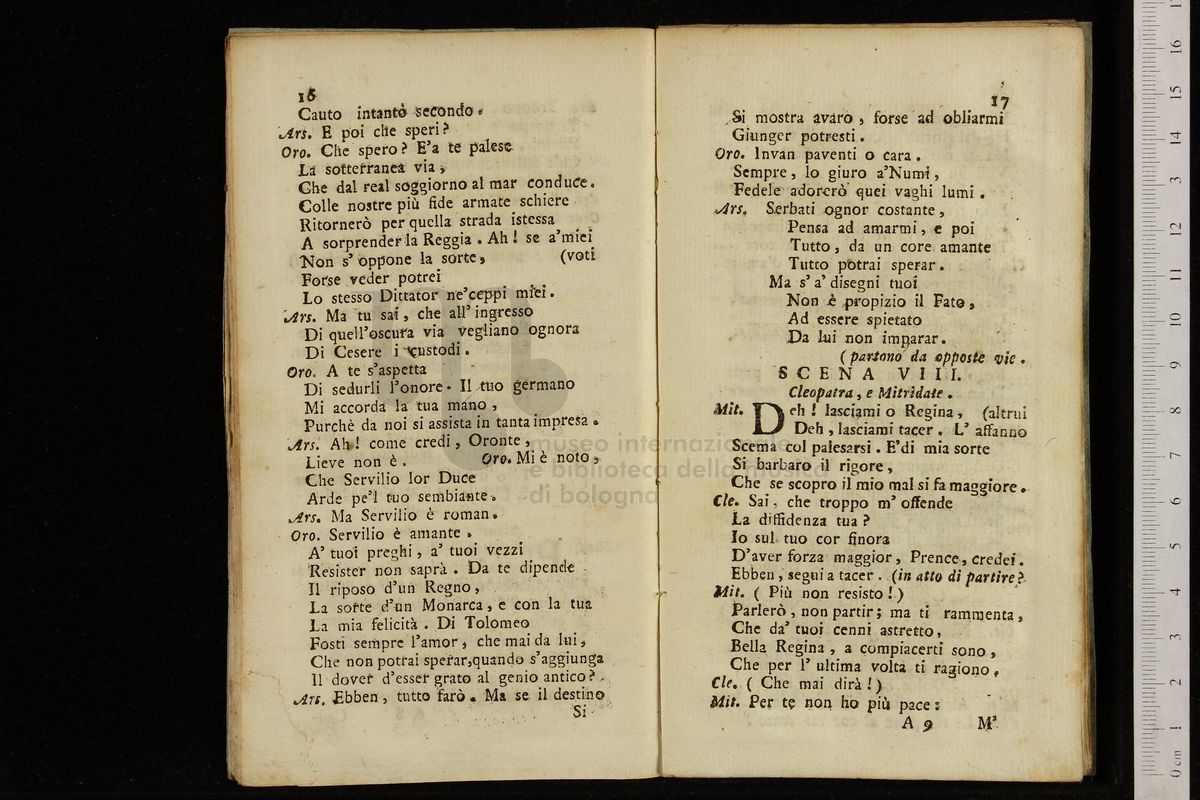 16
Cauto intanto secondo.
Ars. E poi che speri?
Oro. Che spero? E'a te palese
La sotterranea via,
Che dal real soggiorno al mar conduce.
Colle nostre più fide armate schiere
Ritornerò per quella strada istessa
A sorprender la Reggia. Ah! se a'miei
Non s'oppone la sorte, (voti
Forse veder potrei
Lo stesso Dittator ne'ceppi miei.
Ars. Ma tu sai, che all'ingresso
Di quell'oscura via vegliano ognora
Di Cesere i custodi.
Oro. A te s'aspetta
Di sedurli l'onore. Il tuo germano
Mi accorda la tua mano,
Purchè da noi si assista in tanta impresa.
Ars. Ah! come credi, Oronte,
Lieve non è. Oro. Mi è noto,
Che Servilio lor Duce
Arde pe'l tuo sembiante.
Ars. Ma Servilio è roman.
Oro. Servilio è amante.
A' tuoi preghi, a' tuoi vezzi
Resister non saprà. Da te dipende
Il riposo d'un Regno,
La sorte d'un Monarca, e con la tua
La mia felicità. Di Tolomeo
Fosti sempre l'amor, che mai da lui,
Che non potrai sperar,quando s'aggiunga
Il dover d'esser grato al genio antico?
Ars. Ebben, tutto farò. Ma se il destino
Si
17
Si mostra avaro, forse ad obliarmi
Giunger potresti.
Oro. Invan paventi o cara.
Sempre, lo giuro a'Numi,
Fedele adorerò quei vaghi lumi.
Ars. Serbati ognor costante,
Pensa ad amarmi, e poi
Tutto, da un core amante
Tutto potrai sperar.
Ma s'a' disegni tuoi
Non è propizio il Fato,
Ad essere spietato
Da lui non imparar.
(partono da opposte vie.
SCENA VIII.
Cleopatra, e Mitridate.
Mit. Deh! lasciami o Regina, (altrui
Deh, lasciami tacer. L' affanno
Scema col palesarsi. E'di mia sorte
Si barbaro il rigore,
Che se scopro il mio mal si fa maggiore.
Cle. Sai, che troppo m' offende
La diffidenza tua?
Io sul tuo cor finora
D'aver forza maggior, Prence, credei.
Ebben, segui a tacer. (in atto di partire?
Mit. (Più non resisto!)
Parlerò, non partir; ma ti rammenta,
Che da' tuoi cenni astretto,
Bella Regina, a compiacerti sono,
Che per l' ultima volta ti ragiono.
Cle. (Che mai dirà!)
Mit. Per te non ho più pace:
A 9 M'
museo internazionale
e biblioteca della musica
di bologna
0 cm 1 2 3 4 5 6 7 8 9 10 11 12 13 14 15 16 17